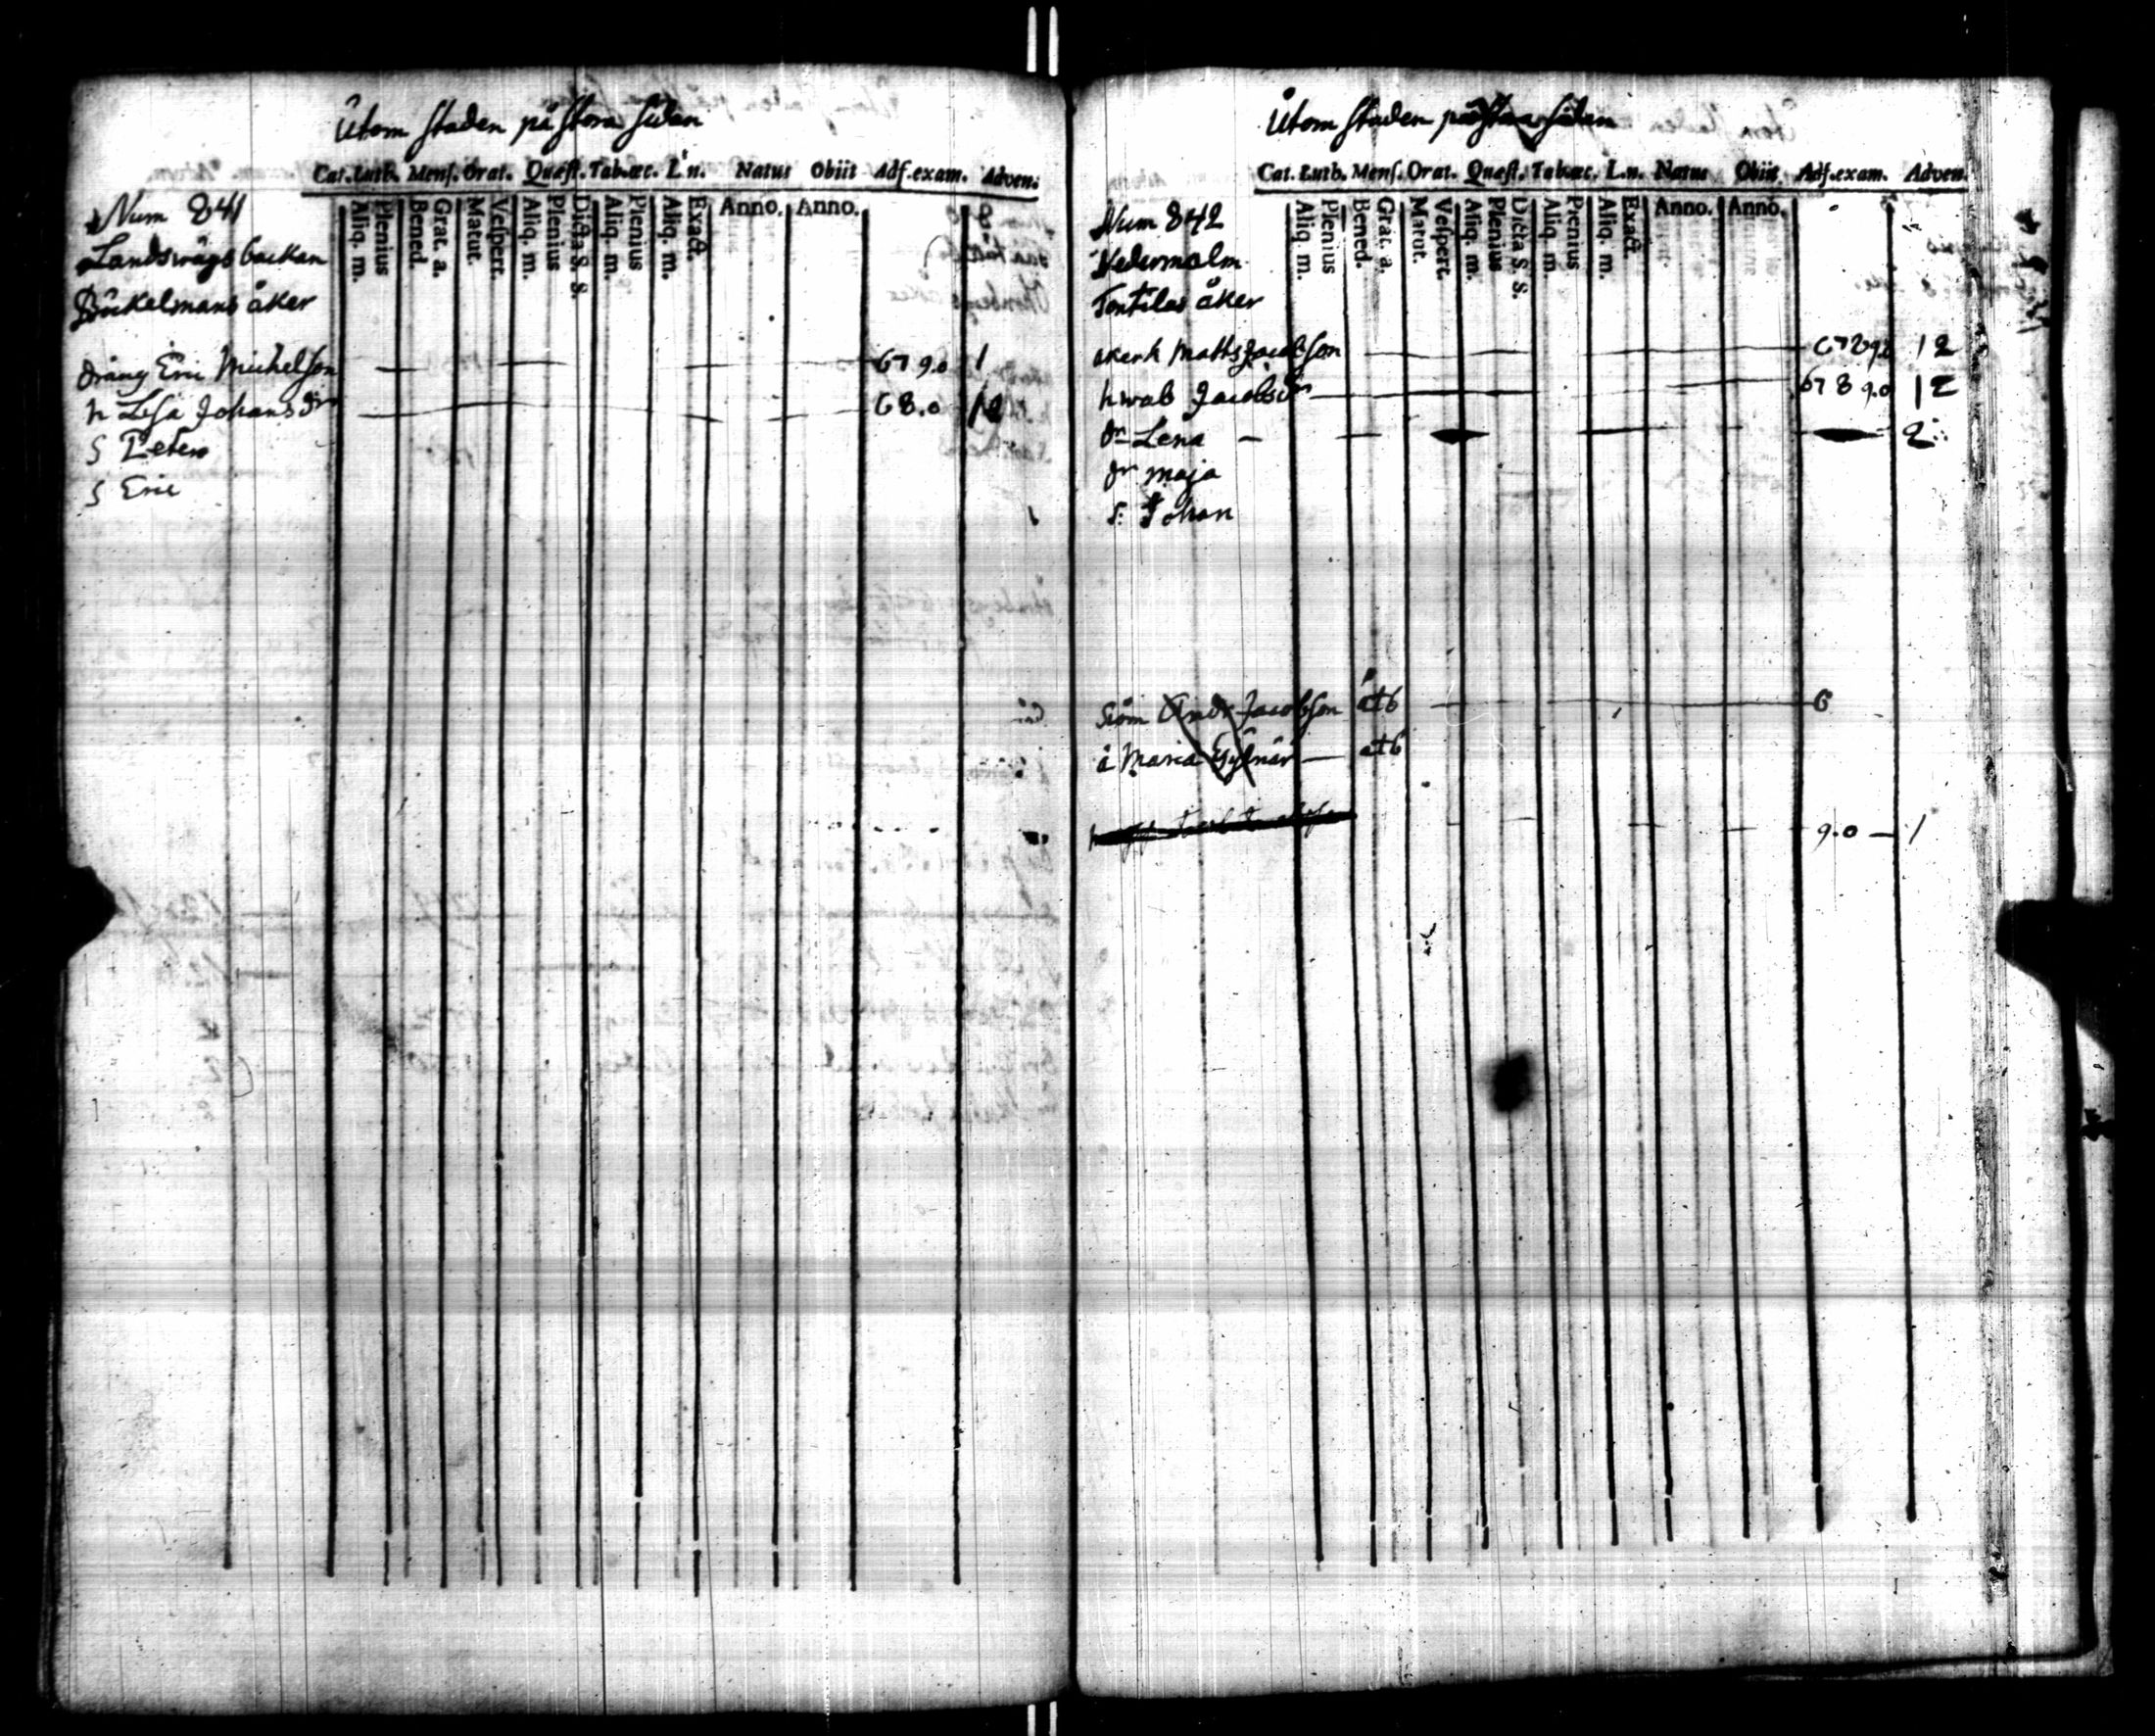 Utom staden på stora sidan
Cat. Luth. Mens. Orat. Quæst. Tab.œc. L.n. Natus Obiit Adf.exam. Adven.
Aliq. m. Plenius Bened. Grat. a. Matut. Vespert. Aliq. m. Plenius Dicta S. S. Aliq. m. Plenius Aliq. m. Exact. Anno. Anno.
Num 841
Landswägs backan
Bökelmans åker
dräng Eric Michelson 67 9.0 1
h Lisa Johans dr 68.0 12
S Peter
S Eric
Utom staden på stora sidan
Cat. Luth. Mens. Orat. Quæst. Tab.œc. L.n. Natus Obiit Adf.exam. Adven.
Aliq. m. Plenius Bened. Grat. a. Matut. Vespert. Aliq. m. Plenius Dicta S. S. Aliq. m. Plenius Aliq. m. Exact. Anno. Anno.
Num 842
Nedermalm
åker
Matts Jacobson 678 9.0 12
h wab Jacobs dr 678 9.0 12
dr Lena 2
dr Maja
S: Johan
Siöm And: Jacobson åt6 6
å Maria åt6
9.0 1